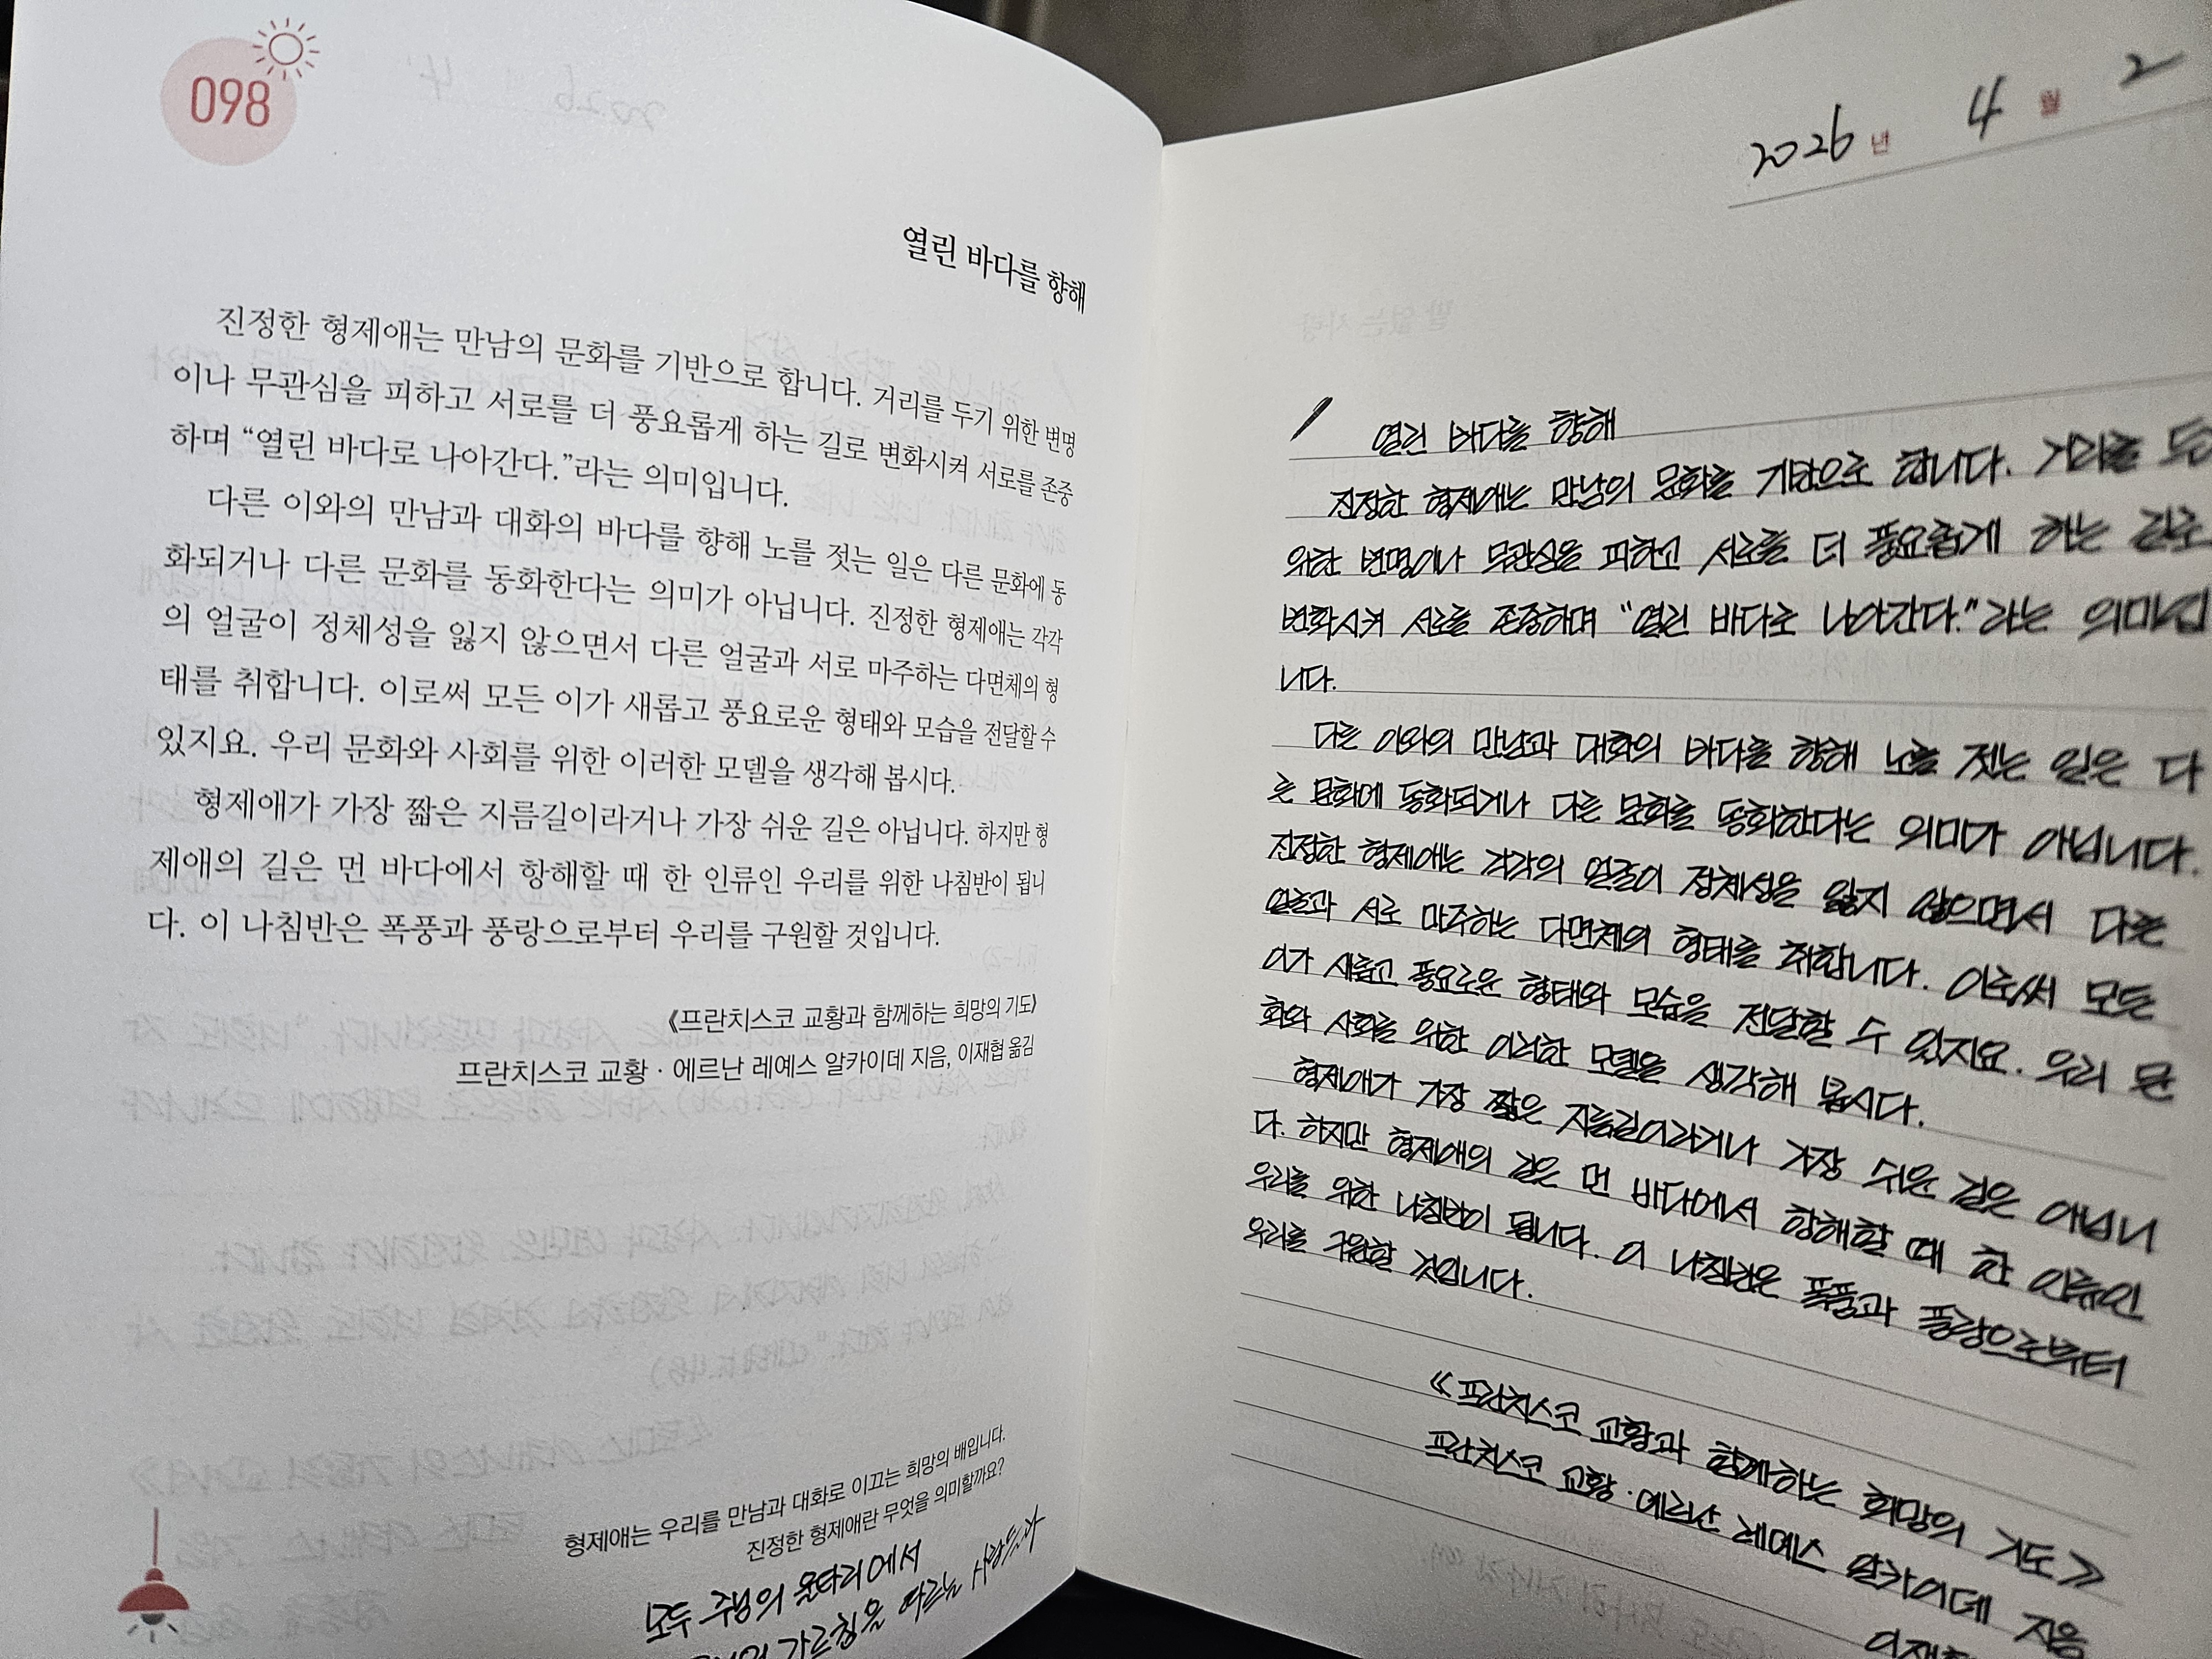 098
열린 바다를 향해
진정한 형제애는 만남의 문화를 기반으로 합니다. 거리를 두기 위한 변명
이나 무관심을 피하고 서로를 더 풍요롭게 하는 길로 변화시켜 서로를 존중
하며 “열린 바다로 나아간다.”라는 의미입니다.
다른 이와의 만남과 대화의 바다를 향해 노를 젓는 일은 다른 문화에 동
화되거나 다른 문화를 동화한다는 의미가 아닙니다. 진정한 형제애는 각각
의 얼굴이 정체성을 잃지 않으면서 다른 얼굴과 서로 마주하는 다면체의 형
태를 취합니다. 이로써 모든 이가 새롭고 풍요로운 형태와 모습을 전달할 수
있지요. 우리 문화와 사회를 위한 이러한 모델을 생각해 봅시다.
형제애가 가장 짧은 지름길이라거나 가장 쉬운 길은 아닙니다. 하지만 형
제애의 길은 먼 바다에서 항해할 때 한 인류인 우리를 위한 나침반이 됩니
다. 이 나침반은 폭풍과 풍랑으로부터 우리를 구원할 것입니다.
《프란치스코 교황과 함께하는 희망의 기도》
프란치스코 교황 · 에르난 레예스 알카이데 지음, 이재협 옮김
형제애는 우리를 만남과 대화로 이끄는 희망의 배입니다.
진정한 형제애란 무엇을 의미할까요?
모두 주님의 울타리에서
가르침을 따르는
2026 년 4 월 2
열린 바다를 향해
진정한 형제애는 만남의 문화를 기반으로 합니다. 거리를 두
위한 변명이나 무관심을 피하고 서로를 더 풍요롭게 하는 길로
변화시켜 서로를 존중하며 “열린 바다로 나아간다.”라는 의미입
니다.
다른 이와의 만남과 대화의 바다를 향해 노를 젓는 일은 다
른 문화에 동화되거나 다른 문화를 동화한다는 의미가 아닙니다.
진정한 형제애는 각각의 얼굴이 정체성을 잃지 않으면서 다른
얼굴과 서로 마주하는 다면체의 형태를 취합니다. 이로써 모든
이가 새롭고 풍요로운 형태와 모습을 전달할 수 있지요. 우리 문
화와 사회를 위한 이러한 모델을 생각해 봅시다.
형제애가 가장 짧은 지름길이라거나 가장 쉬운 길은 아닙니
다. 하지만 형제애의 길은 먼 바다에서 항해할 때 한 인류인
우리를 위한 나침반이 됩니다. 이 나침반은 폭풍과 풍랑으로부터
우리를 구원할 것입니다.
《프란치스코 교황과 함께하는 희망의 기도》
프란치스코 교황 · 에르난 레예스 알카이데 지음